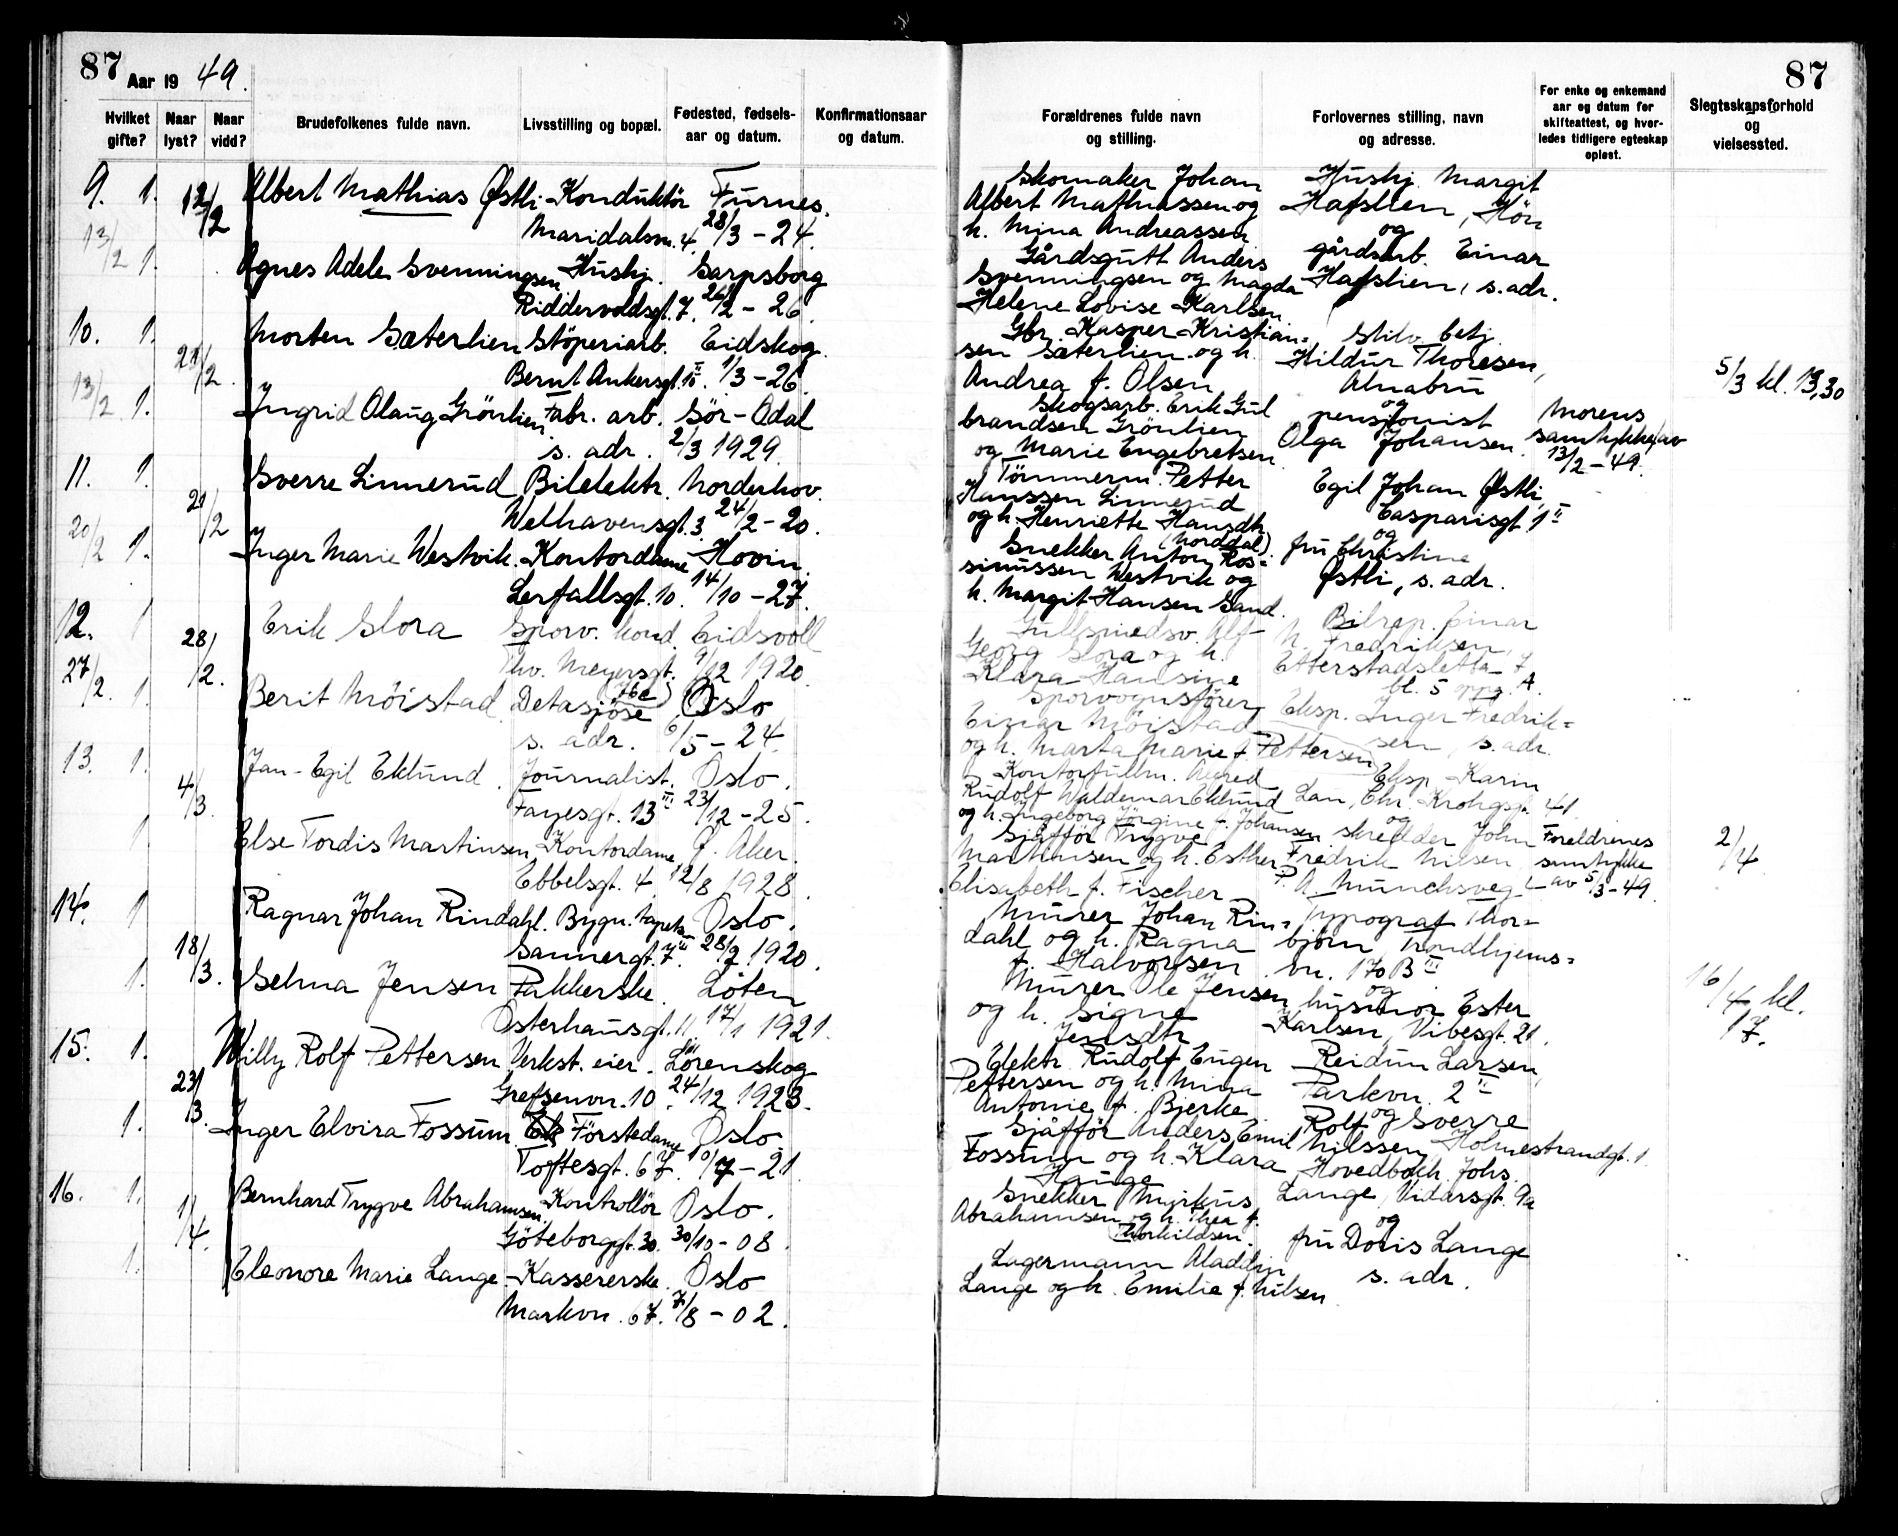 87 Aar 19 49.
Hvilket gifte?
Naar lyst?
Naar vidd?
Brudefolkenes fulde navn.
Livsstilling og bopæl.
Fødested, fødsels-
aar og datum.
Konfirmationsaar
og datum.
9. 1. 12/2 Albert Mathias Østli Konduktör Furnes.
Maridalsvn. 4. 28/3 - 24.
13/2 1. Agnes Adele Svenningsen Hushj. Sarpsborg
Riddervoldsgt. 7. 26/2 - 26.
10. 1. Morten Sæterlien Støperiarb. Eidskog.
21/2. Bernt Ankersgt. 10 II. 1/3 - 26.
13/2 1. Ingrid Olaug Grönlien Fabr. arb. Sör-Odal
s. adr. 2/3 1929.
11. 1. Sverre Linnerud Bilelektr. Norderhov.
21/2 Welhavensgt. 3. 24/2 - 20.
20/2 1. Inger Marie Westvik. Kontordame Hovin.
Lerfallsgt. 10. 14/10 - 27.
12. 1 Erik Slora Sporv. kond. Eidsvoll
28/2. Thv. Meyersgt. 9/12 1920.
27/2. 1. Berit Möistad (76c) Detasjöse Oslo
s. adr. 6/5 - 24.
13. 1. Jan-Egil Eklund. Journalist. Oslo.
4/3. Fayesgt. 13 III. 23/12 - 25.
1 Else Tordis Martinsen Kontordame, Ø. Aker.
Ebbelsgt. 4 12/8 1928.
14. 1 Ragnar Johan Rindahl. Bygn. tapets. Oslo.
18/3. Sannergt. 7 III. 28/2 1920.
1. Selma Jensen Pakkerske. Löten
Osterhausgt. 11. 17/1 1921.
15. 1. Willy Rolf Pettersen Verkst. eier. Lörenskog
23/3. Grefsenvn. 10. 24/12 1923.
1. Inger Elvira Fossum. Förstedame Oslo.
Toftesgt. 67. 10/7 - 21.
16. 1. Bernhard Trygve Abrahamsen. Kontrollör Oslo.
1/4. Göteborggt. 30. 30/10 - 08.
1. Eleonore Marie Lange. Kassererske. Oslo
Markvn. 67. 7/8 - 02.
87
Forældrenes fulde navn
og stilling.
Forlovernes stilling, navn
og adresse.
For enke og enkemand
aar og datum for
skifteattest, og hvor-
ledes tidligere egteskap
opløst.
Slegtsskapsforhold
og
vielsessted.
Skomaker Johan Hushj. Margit
Albert Mathiassen og Hafslien,
h. Mina Andreassen og
Gårdsgutt Anders gårdsarb. Einar
Svenningsen og Magda Hafslien, s. adr.
Helene Lovise Karlsen
Gbr. Kasper Kristian= betj.
sen Sæterlien og h. Hildur Thoresen,
Andrea f. Olsen Alnabru 5/3 kl. 13,30
Skogsarb. Erik Gul og
brandsen Grönlien pensjonist Morens
og Marie Engebretsen. Olga Johansen. samtykke av
13/2 - 49.
Tömmerm. Petter Egil Johan Østli,
Hanssen Linnerud Casparisgt 1 II
og h. Henriette Hansdtr. og
(Norddal).
Snekker Anton Ras= fru Christine
sinussen Westvik og Østli, s. adr.
h. Margit Hansen Sand.
Gullsmedsv. Alf Bilrep. Einar
Georg Slora og h. N. Fredriksen,
Klara Hansine Etterstadsletta 7
bl. 5 oppg. A.
Sporvognsfører Eksp. Inger Fredrik=
Einar Möistad sen, s. adr.
og h. Marta Marie f. Pettersen
Kontorfullm. Alfred Eksp. Karin
Rudolf Waldemar Eklund Lan, Chr. Krohgsgt. 41.
og h. Ingeborg Jörgine f. Johansen og
Sjåfför Trygve skredder John Foreldrenes 2/4
Martinsen og h. Esther Fredrik Nilsen samtykke
Elisabeth f. Fischer P. A. Munchsveg av 5/3 - 49.
Murer Johan Rin= Typograf Thor=
dahl og h. Ragna björn Trondhjems=
f. Halvorsen vn. 170 B III
Murer Ole Jensen og 16/4 kl.
og h. Signe husmor Ester 17.
Jensdtr. Karlsen, Vibesgt. 21.
Elektr. Rudolf Eugen Reidun Larsen,
Pettersen og h. Mina Parkvn. 2 II
Antonie f. Bjerke og
Sjåfför Anders Emil Rolf Sverre
Fossum og h. Klara Nilssen, Holmestrandgt. 1.
Hauge Hovedbokh. Johs.
Snekker Markus Lange, Vidarsgt. 9a
Abrahamsen og h. Thea f. og
Thorkildsen.
Lagermann Aladdin fru Doris Lange
Lange og h. Emilie f. Nilsen s. adr.